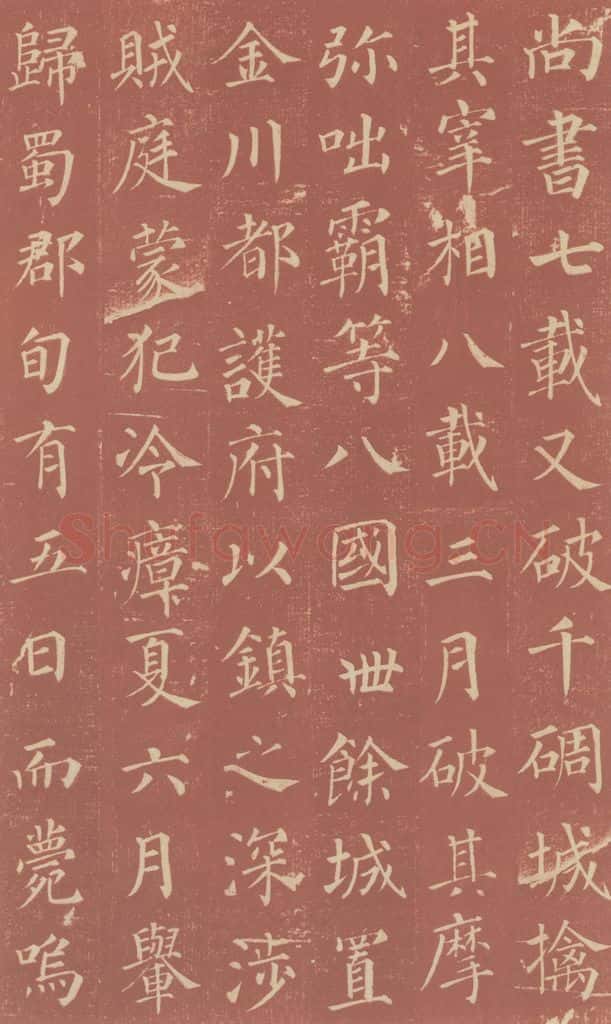 尚書七載又破千碉城擒
其宰相八載三月破其摩
弥咄霸等八國卌餘城置
金川都護府以鎮之深涉
賊庭蒙犯冷瘴夏六月轝
歸蜀郡旬有五日而薨嗚
Shufawang.CN